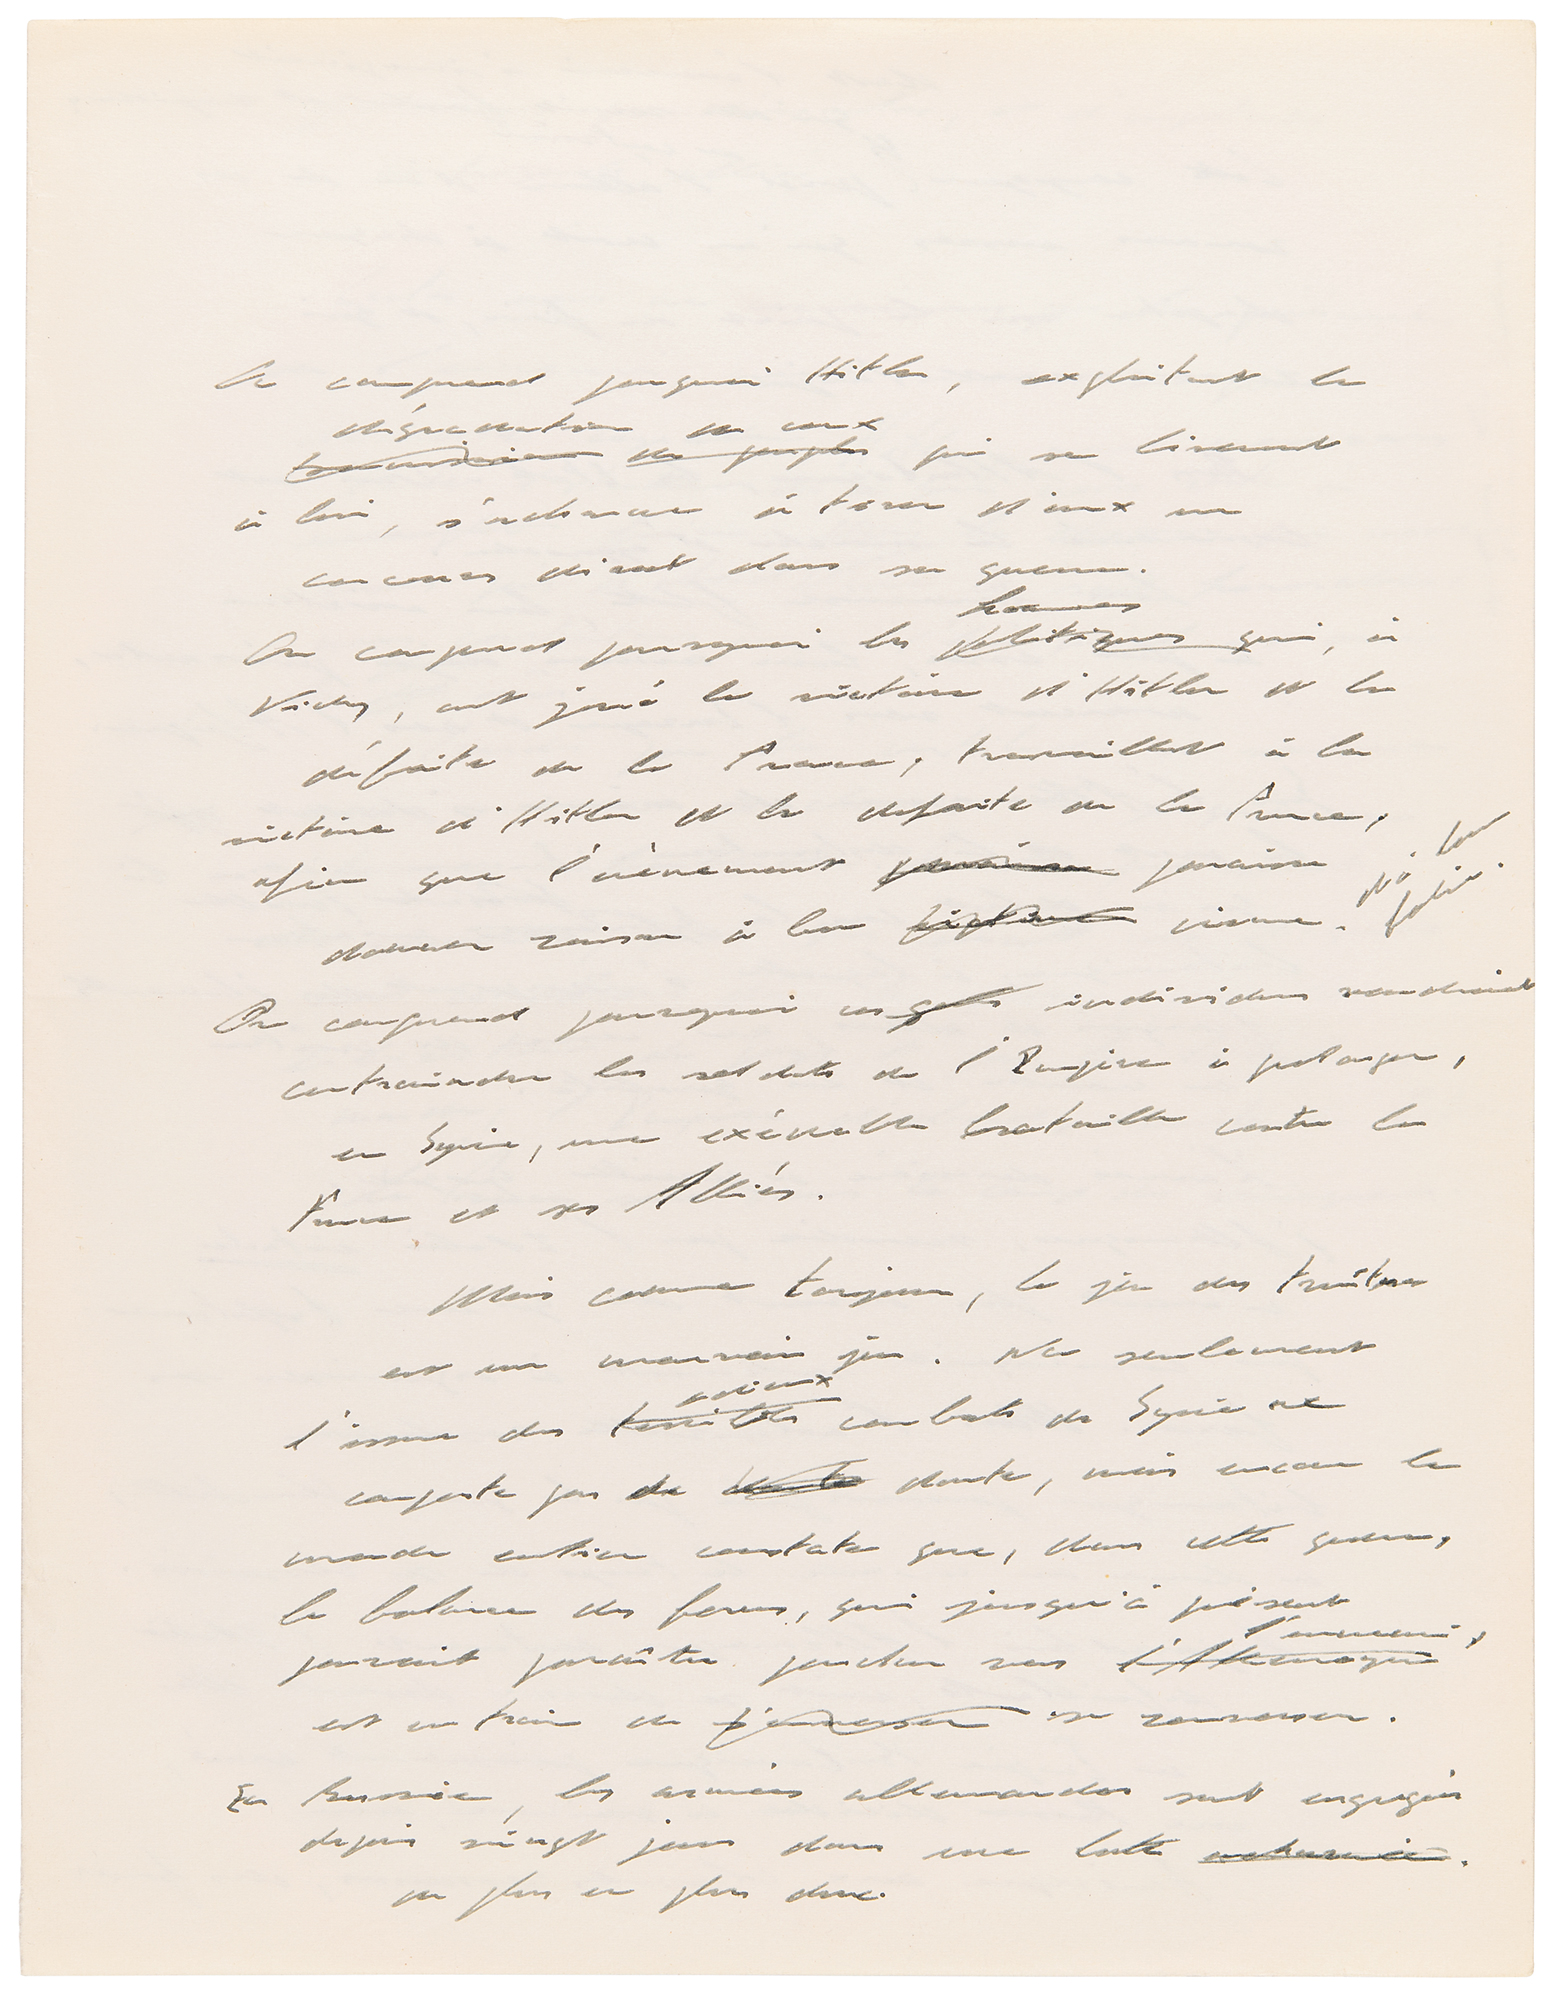 On comprend pourquoi Hitler, exploitant la
dégradation de ceux
des peuples qui se livrent
à lui, s'acharne à tirer d'eux un
concours direct dans sa guerre.
hommes
On comprend pourquoi les politiques qui, à
Vichy, ont joué la victoire d'Hitler et la
défaite de la France, travaillent à la
victoire d'Hitler et la défaite de la France,
afin que l'évènement paraisse paraisse
donner raison à leur victoire crime.
On comprend pourquoi ces gens individus voudraient
contraindre les soldats de l'Empire à prolonger,
en Syrie, une exécrable bataille contre la
France et ses Alliés.
Mais comme toujours, le jeu des traîtres
est un mauvais jeu. Non seulement
odieux
l'issue des terribles combats de Syrie ne
comporte pas de doute doute, mais encore le
monde entier constate que, dans cette guerre,
la balance des forces, qui jusqu'à présent
l'ennemi,
pouvait paraître pencher vers l'Allemagne
est en train de se renverser.
En Russie, les armées allemandes sont engagées
depuis vingt jours dans une lutte acharnée.
de plus en plus dure.